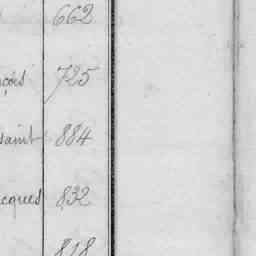 662
çois 725
saint 884
cques 832
818